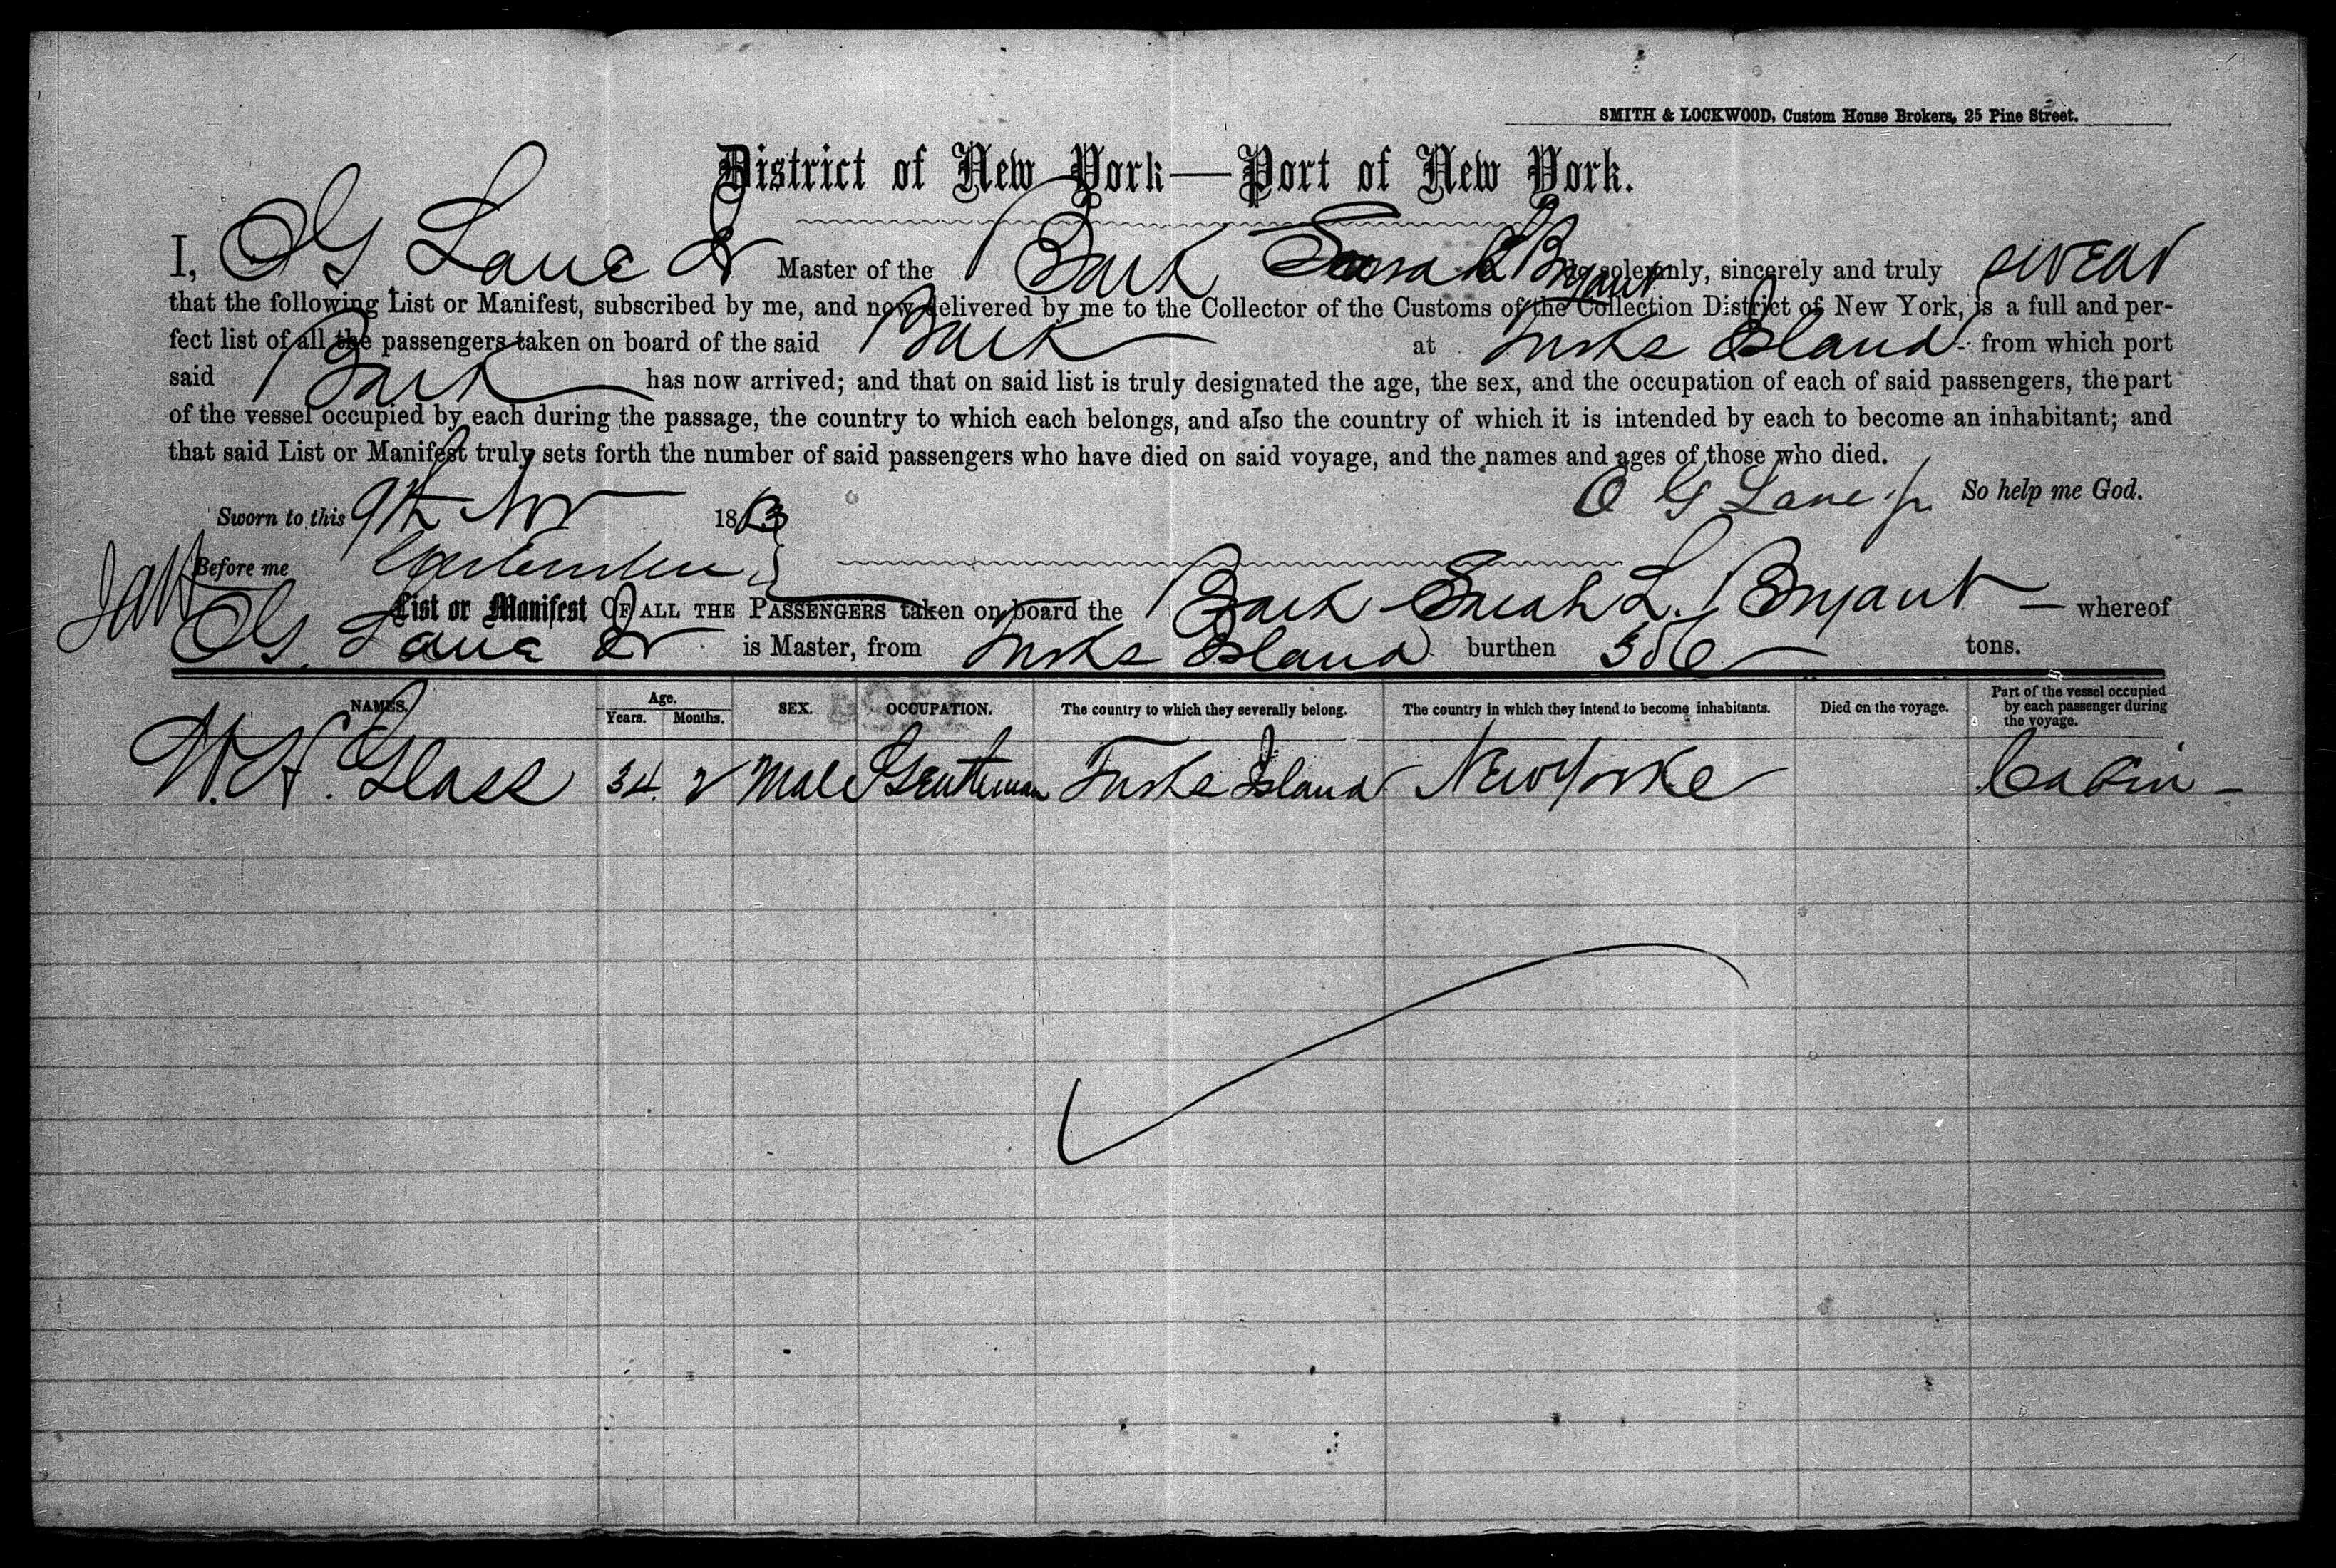 SMITH & LOCKWOOD, Custom House Brokers, 25 Pine Street.
District of New York—Port of New York.
I, O G Lane Jr Master of the Bark Sarah L Bryant do solemnly, sincerely and truly swear
that the following List or Manifest, subscribed by me, and now delivered by me to the Collector of the Customs of the Collection District of New York, is a full and per-
fect list of all the passengers taken on board of the said Bark at Turks Island from which port
said Bark has now arrived; and that on said list is truly designated the age, the sex, and the occupation of each of said passengers, the part
of the vessel occupied by each during the passage, the country to which each belongs, and also the country of which it is intended by each to become an inhabitant; and
that said List or Manifest truly sets forth the number of said passengers who have died on said voyage, and the names and ages of those who died.
O G Lane Jr So help me God.
Sworn to this 9th Nov 18
Before me
List or Manifest OF ALL THE PASSENGERS taken on board the Bark Sarah L. Bryant — whereof
O G. Lane Jr is Master, from Turks Island burthen tons.
NAMES. Age. Years. Months. SEX. OCCUPATION. The country to which they severally belong. The country in which they intend to become inhabitants. Died on the voyage. Part of the vessel occupied by each passenger during the voyage.
W. H. Glass 34. 2 Male Gentleman Turks Island New Yorke Cabin —